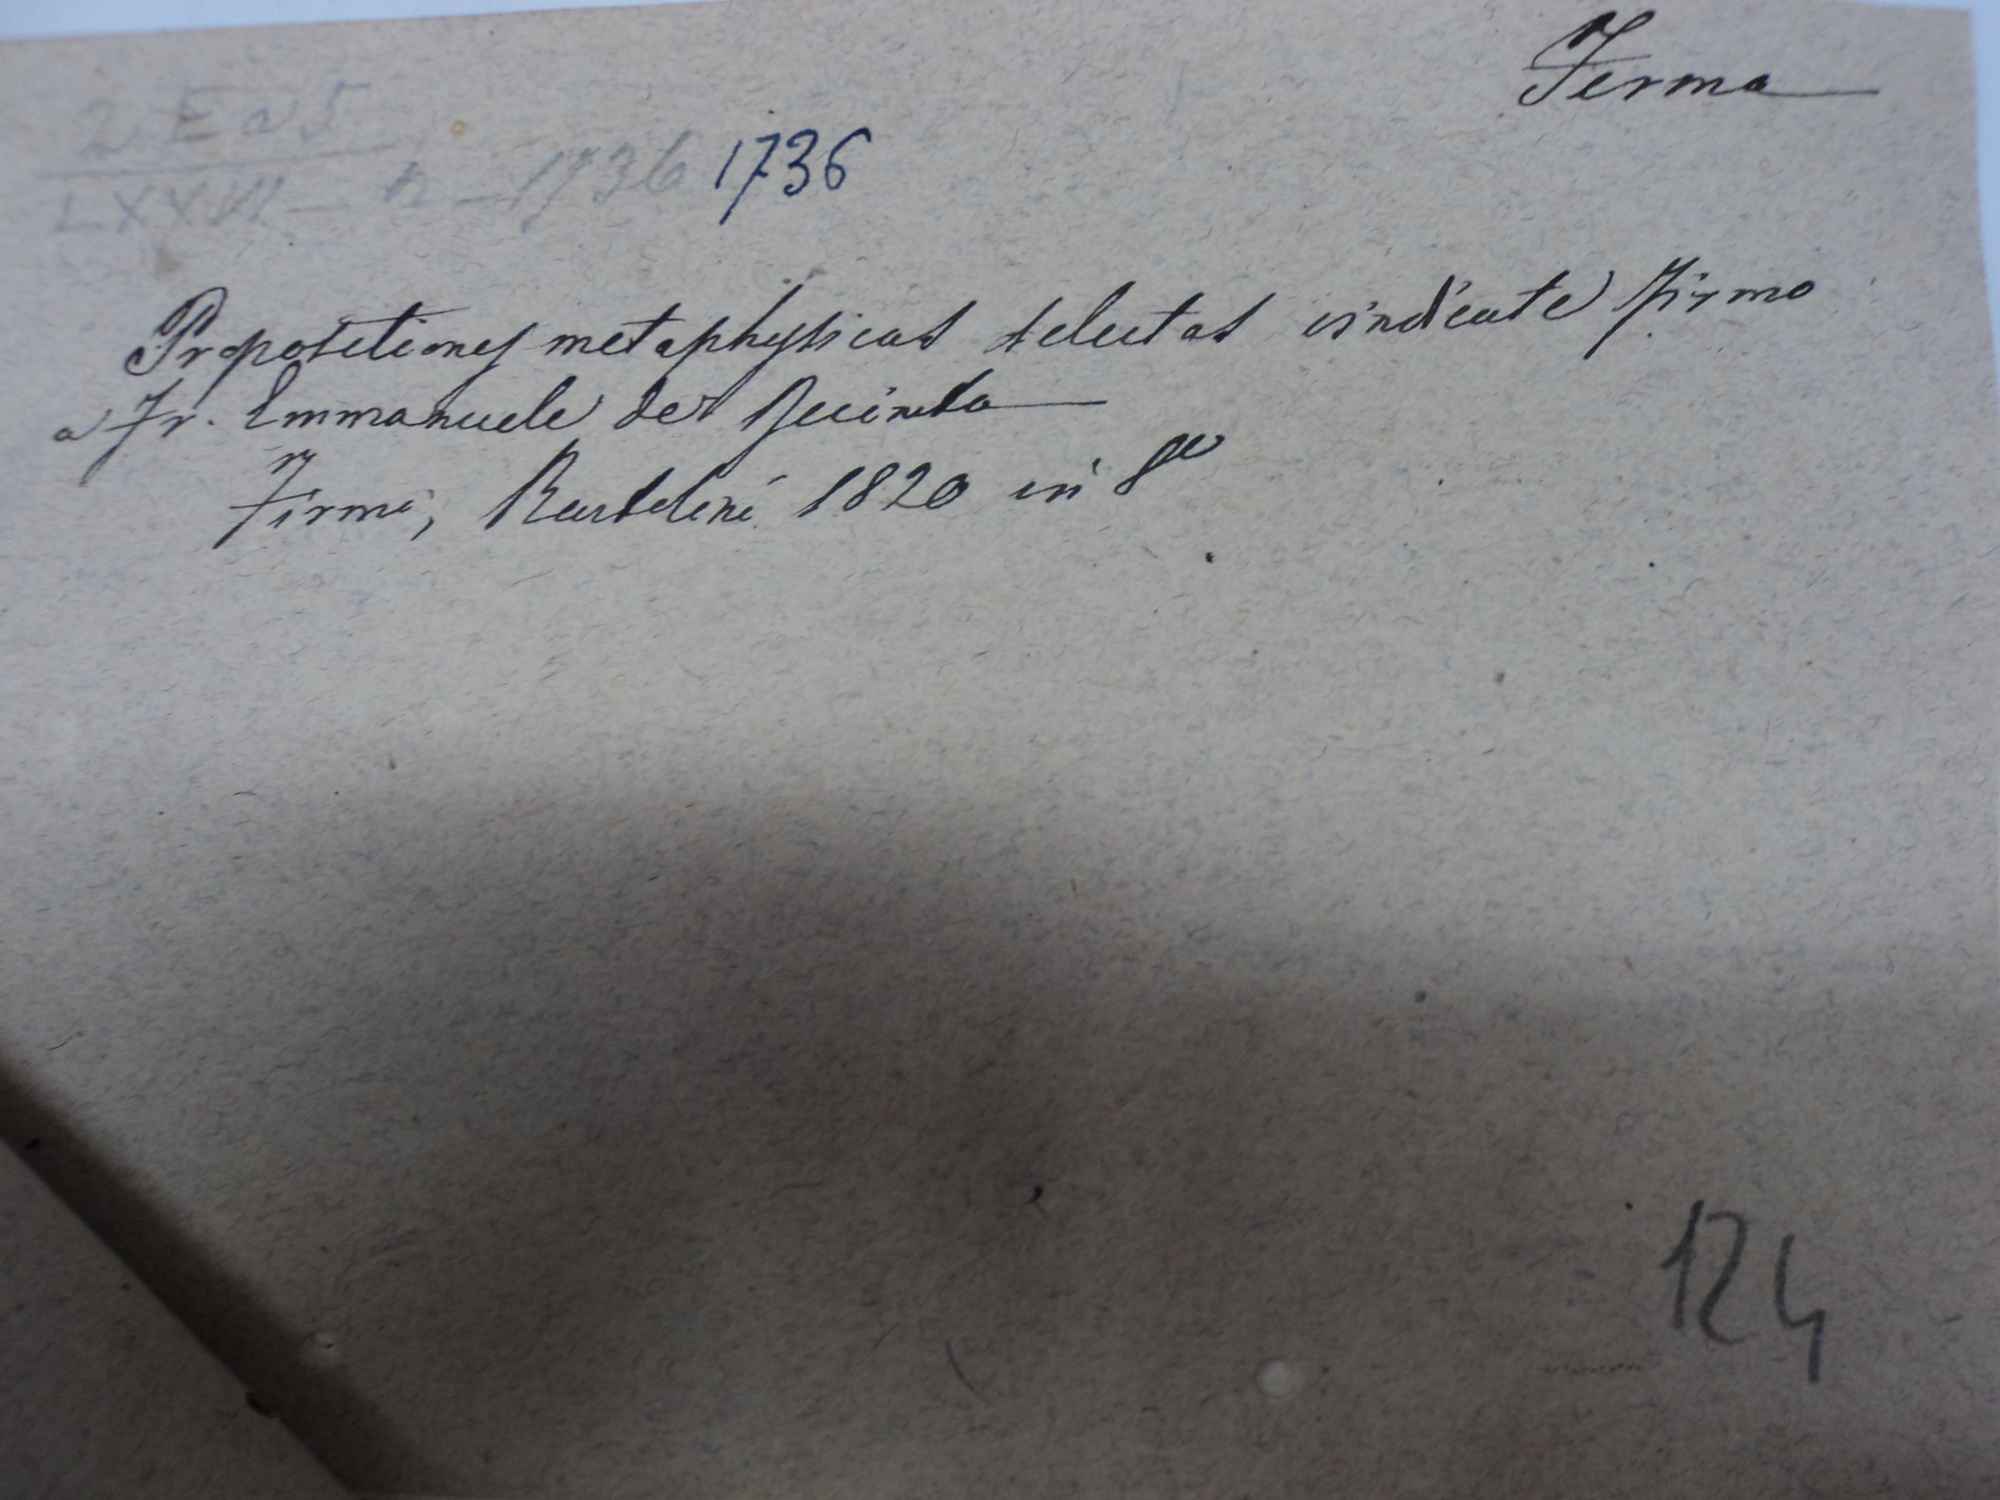 Fermo
2 E a 5
LXXVI - n - 1736 1736
Propositiones metaphysicas selectas vindicate Firmo
a Fr. Emmanuele de
Firmi, 1820 in 8°
124